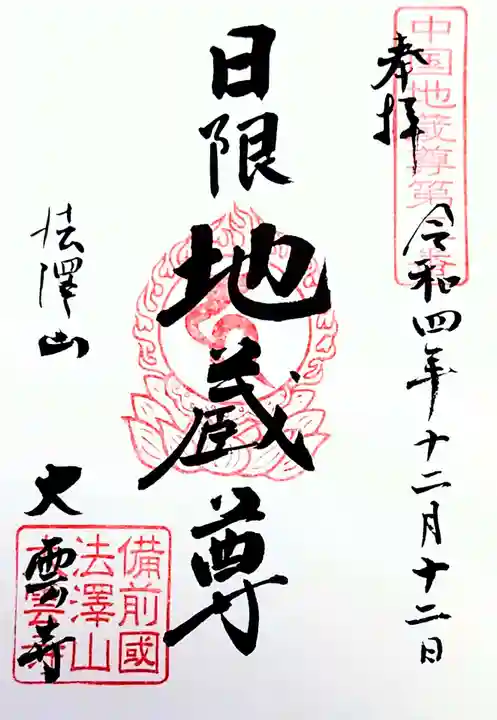 中国地蔵尊第
奉拝
令和四年十二月十二日
日限
地蔵尊
法澤山
大雲寺
備前國
法澤山
大雲寺